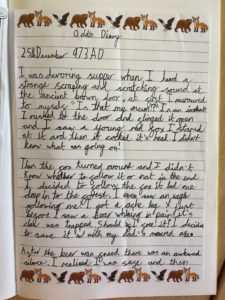 Odds Diary
25th December 473 A.D
I was devouring supper when I heard a
strange scraping and scratching sound at
the ancient brown door, at first I murmured
to myself "Is that my mum?" In an instant
I rushed to the door and clinged it open
and I saw a young red fox I stared
at it and then it cocked it's head I didn't
know what was going on!
Then the fox turned around and I didn't
know whether to follow it or not in the end
I decided to follow the fox it led me
deep in to the forest. I even saw an eagle
following me! I got a ache by
before I saw a bear whining in pain it's
claw was trapped. Should I save it? I decided
to save it with my dad's axe
After the bear was freed there was an awkward
silence. I realised I was safe and then